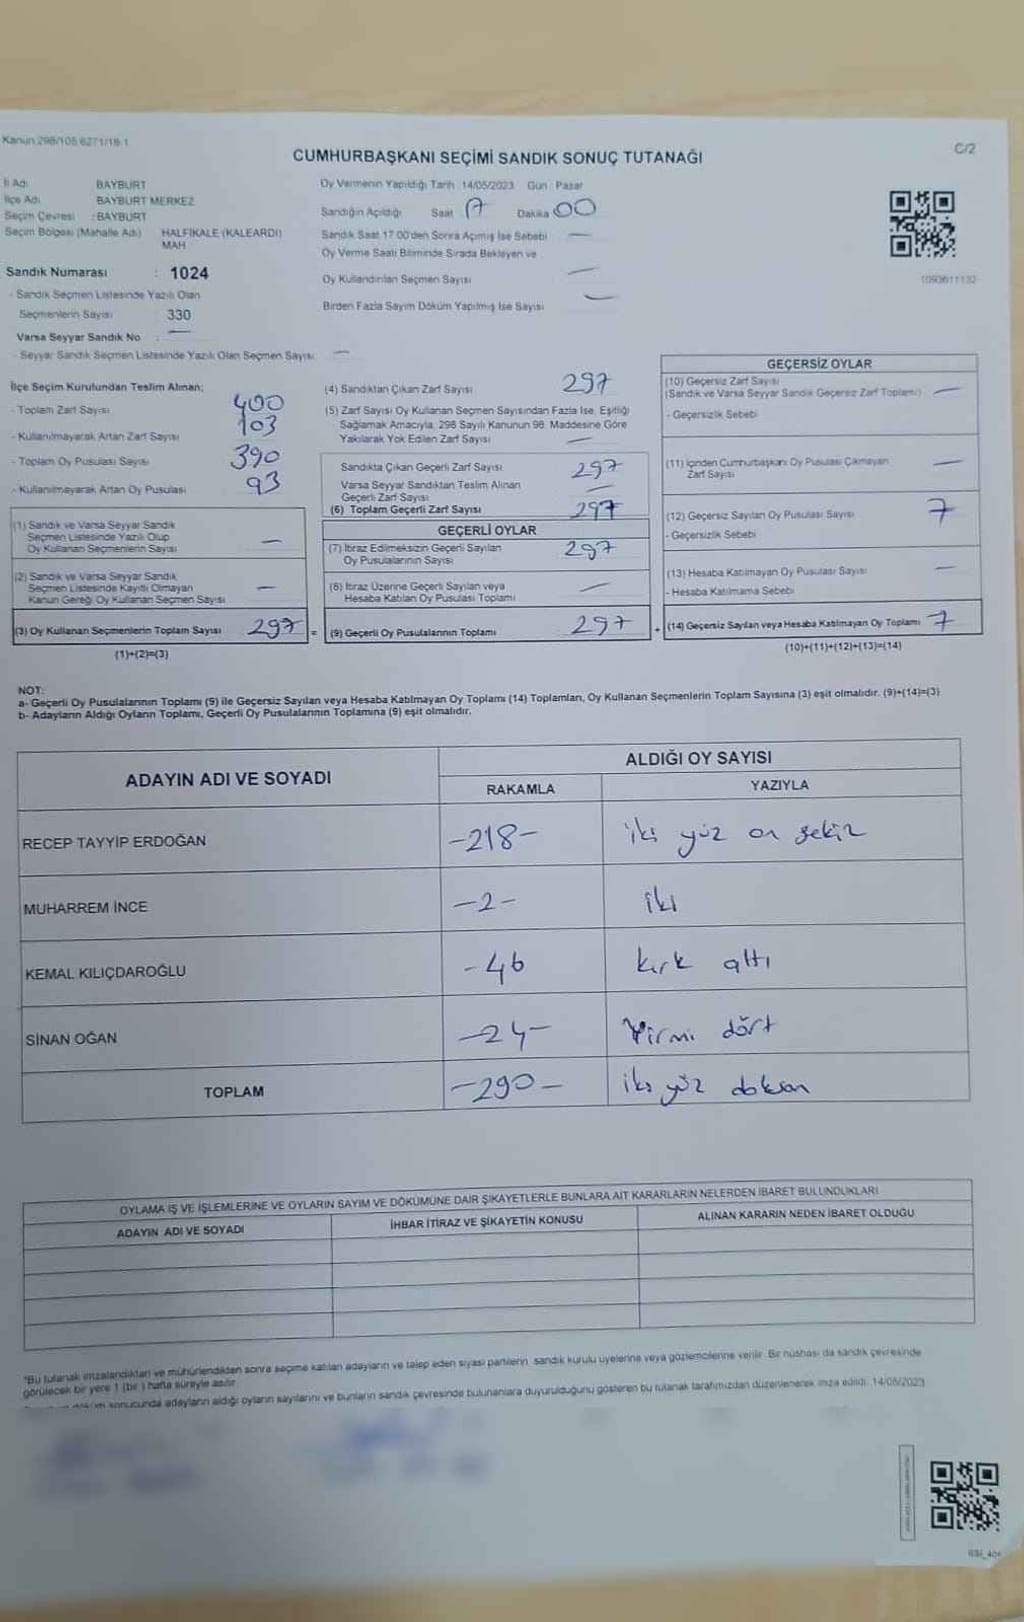 Kanun:298/105,6271/18-1
C/2
CUMHURBAŞKANI SEÇİMİ SANDIK SONUÇ TUTANAĞI
İl Adı BAYBURT
İlçe Adı BAYBURT MERKEZ
Seçim Çevresi : BAYBURT
Seçim Bölgesi (Mahalle Adı) HALFİKALE (KALEARDI) MAH
Sandık Numarası : 1024
- Sandık Seçmen Listesinde Yazılı Olan
Seçmenlerin Sayısı 330
Varsa Seyyar Sandık No : —
- Seyyar Sandık Seçmen Listesinde Yazılı Olan Seçmen Sayısı —
Oy Vermenin Yapıldığı Tarih 14/05/2023 Gün : Pazar
Sandığın Açıldığı Saat 17 Dakika 00
Sandık Saat 17.00'den Sonra Açımış İse Sebebi —
Oy Verme Saati Bitiminde Sırada Bekleyen ve
Oy Kullandırılan Seçmen Sayısı —
Birden Fazla Sayım Döküm Yapılmış İse Sayısı —
1093611132
İlçe Seçim Kurulundan Teslim Alınan;
- Toplam Zarf Sayısı 400
- Kullanılmayarak Artan Zarf Sayısı 103
- Toplam Oy Pusulası Sayısı 390
- Kullanılmayarak Artan Oy Pusulası 93
(1) Sandık ve Varsa Seyyar Sandık
Seçmen Listesinde Yazılı Olup
Oy Kullanan Seçmenlerin Sayısı —
(2) Sandık ve Varsa Seyyar Sandık
Seçmen Listesinde Kayıtlı Olmayan
Kanun Gereği Oy Kullanan Seçmen Sayısı —
(3) Oy Kullanan Seçmenlerin Toplam Sayısı 297 =
(1)+(2)=(3)
(4) Sandıktan Çıkan Zarf Sayısı 297
(5) Zarf Sayısı Oy Kullanan Seçmen Sayısından Fazla İse, Eşitliği
Sağlamak Amacıyla, 298 Sayılı Kanunun 98. Maddesine Göre
Yakılarak Yok Edilen Zarf Sayısı —
Sandıkta Çıkan Geçerli Zarf Sayısı 297
Varsa Seyyar Sandıktan Teslim Alınan
Geçerli Zarf Sayısı —
(6) Toplam Geçerli Zarf Sayısı 297
GEÇERLİ OYLAR
(7) İtiraz Edilmeksizin Geçerli Sayılan
Oy Pusulalarının Sayısı 297
(8) İtiraz Üzerine Geçerli Sayılan veya
Hesaba Katılan Oy Pusulası Toplamı —
(9) Geçerli Oy Pusulalarının Toplamı 297 +
GEÇERSİZ OYLAR
(10) Geçersiz Zarf Sayısı
(Sandık ve Varsa Seyyar Sandık Geçersiz Zarf Toplamı) —
- Geçersizlik Sebebi
(11) İçinden Cumhurbaşkanı Oy Pusulası Çıkmayan
Zarf Sayısı —
(12) Geçersiz Sayılan Oy Pusulası Sayısı 7
- Geçersizlik Sebebi
(13) Hesaba Katılmayan Oy Pusulası Sayısı —
- Hesaba Katılmama Sebebi
(14) Geçersiz Sayılan veya Hesaba Katılmayan Oy Toplamı 7
(10)+(11)+(12)+(13)=(14)
NOT:
a- Geçerli Oy Pusulalarının Toplamı (9) ile Geçersiz Sayılan veya Hesaba Katılmayan Oy Toplamı (14) Toplamları, Oy Kullanan Seçmenlerin Toplam Sayısına (3) eşit olmalıdır. (9)+(14)=(3)
b- Adayların Aldığı Oyların Toplamı, Geçerli Oy Pusulalarının Toplamına (9) eşit olmalıdır.
ADAYIN ADI VE SOYADI ALDIĞI OY SAYISI
RAKAMLA YAZIYLA
RECEP TAYYİP ERDOĞAN -218- iki yüz on sekiz
MUHARREM İNCE -2- iki
KEMAL KILIÇDAROĞLU -46 kırk altı
SİNAN OĞAN -24- Yirmi dört
TOPLAM -290- iki yüz doksan
OYLAMA İŞ VE İŞLEMLERİNE VE OYLARIN SAYIM VE DÖKÜMÜNE DAİR ŞİKAYETLERLE BUNLARA AİT KARARLARIN NELERDEN İBARET BULUNDUKLARI
ADAYIN ADI VE SOYADI İHBAR İTİRAZ VE ŞİKAYETİN KONUSU ALINAN KARARIN NEDEN İBARET OLDUĞU
"Bu tutanak imzalandıktan ve mühürlendikten sonra seçime katılan adayların ve talep eden siyasi partilerin sandık kurulu üyelerine veya gözlemcilerine verilir. Bir nüshası da sandık çevresinde
görülecek bir yere 1 (bir) hafta süreyle asılır.
döküm sonucunda adayların aldığı oyların sayılarını ve bunların sandık çevresinde bulunanlara duyurulduğunu gösteren bu tutanak tarafımızdan düzenlenerek imza edildi. 14/05/2023